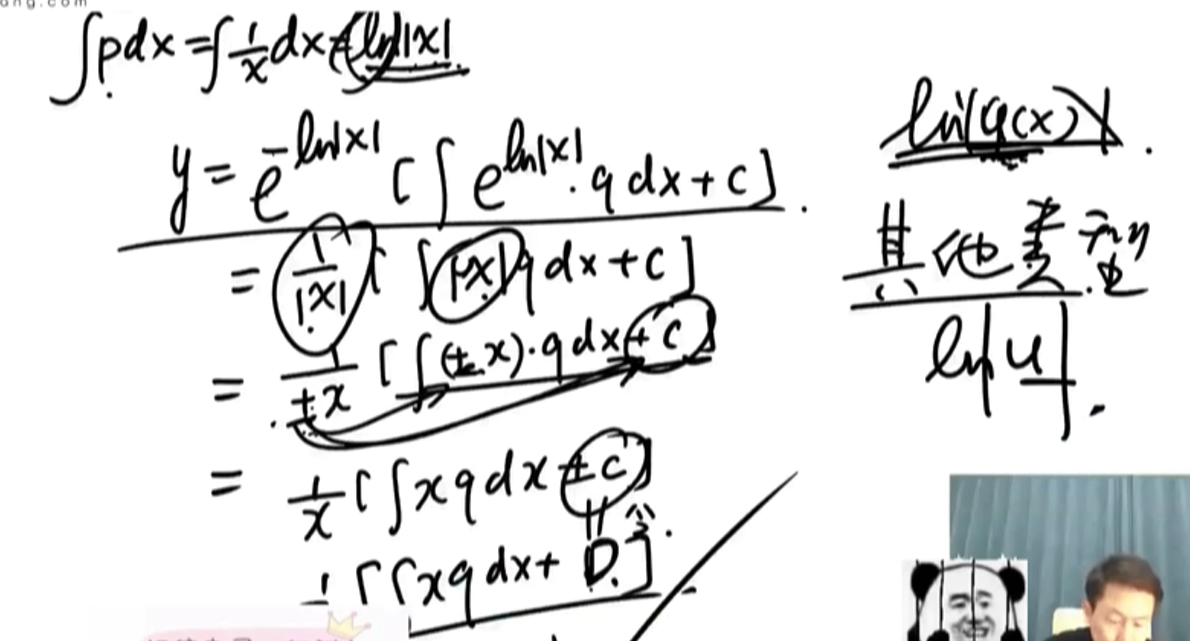 ang.com
∫pdx=∫1/x dx=(ln)|x|
y=e^{-ln|x|}[∫e^{ln|x|}·qdx+C].
=1/|x|[∫|x|qdx+C]
=1/±x[∫(±x)·qdx+C]
=1/x[∫xqdx±C]
1/x[∫xqdx+D.]
ln|φ(x)|.
其他类型
ln|u|.